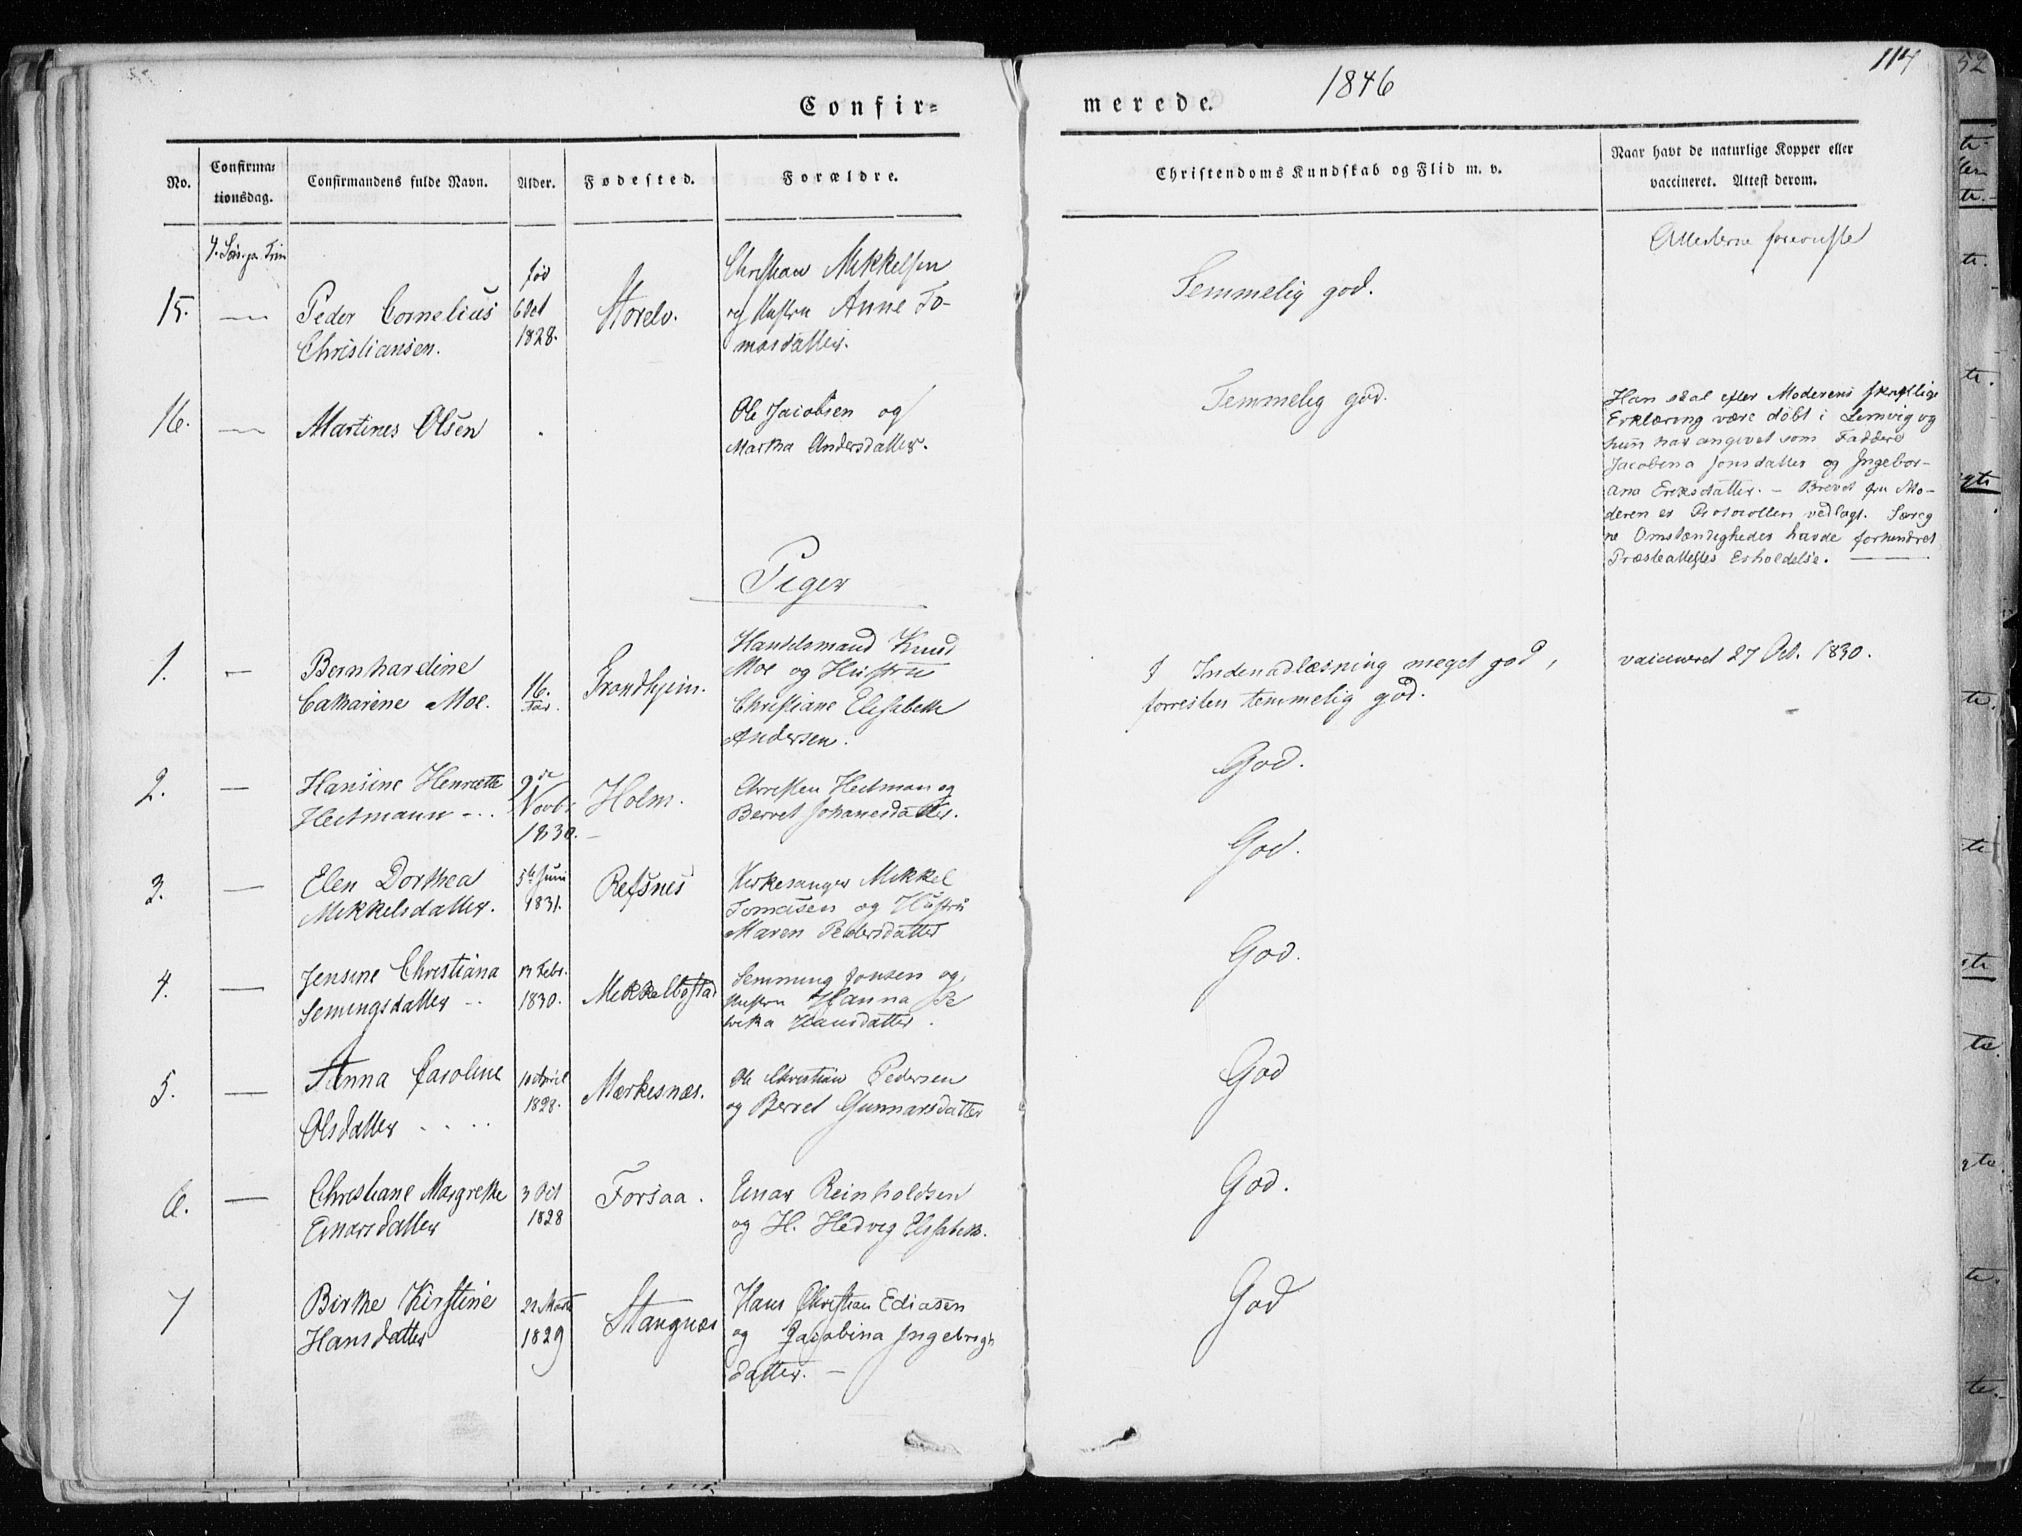 Confir=
merede.
1846
114
52
No.
Confirma=
tionsdag.
Confirmandens fulde Navn.
Alder.
Fødested.
Forældre.
Christendoms Kundskab og Flid m. v.
Naar havt de naturlige Kopper eller
vaccineret. Attest derom.
Attesterne foreviste
15.
Peder Cornelius
Christiansen.
fød
6 Oct
1828.
Storelv.
Christian Mikkelsen
og Hustru Anne To-
masdatter.
Temmelig god.
16.
Martines Olsen
Ole Jacobsen og
Martha Andersdatter.
Temmelig god.
Han skal efter Moderens skriftlige
Erklæring være døbt i Lemvig og
hun har angivet som Faddere
Jacobina Jonsdatter og Ingebor-
ana Eriksdatter. - Brevet fra Mo-
deren er Protocollen vedlagt. Særeg
ne Omstændigheder havde forhindret
Præsteattestes Erholdelse.
Piger
1.
Bernhardine
Catharine Moe.
16.
Aar.
Trondhjem.
Handelsmand Knud
Moe og Hustru
Christiane Elisabeth
Andersen.
I Indenadlæsning meget god,
forresten temmelig god.
vaccineret 27 Oct. 1830.
2.
Hansine Henriette
Heitmann - . .
9de
Novbr
1830.
Holm.
Christen Heitman og
Berret Johanesdatter.
God.
3.
Elen Dorthea
Mikkelsdatter.
5te Juni
1831.
Refsnes
Kirkesanger Mikkel
Tomasen og Hustru
Maren Pedersdatter
God.
4.
Jensine Christiana
Semingsdatter - .
13 Febr.
1830.
Mikkelbostad
Semming Jonsen og
Hustru Hanna Re
beka Hansdatter.
God.
5.
Anna Caroline
Olsdatter . . . .
10 April
1828.
Mærkesnæs.
Ole Christian Pedersen
og Berret Gunnarsdatter
God
6.
Christiane Margrethe
Einarsdatter
3 Oct
1828
Forsaa.
Einar Reinholdsen
og H. Hedvig Elisabeth.
God.
7
Birthe Kirstine
Hansdatter
22 Marts
1829
Stangnæs
Hans Christian Ediasen
og Jacobina Ingebregts
datter. -
God